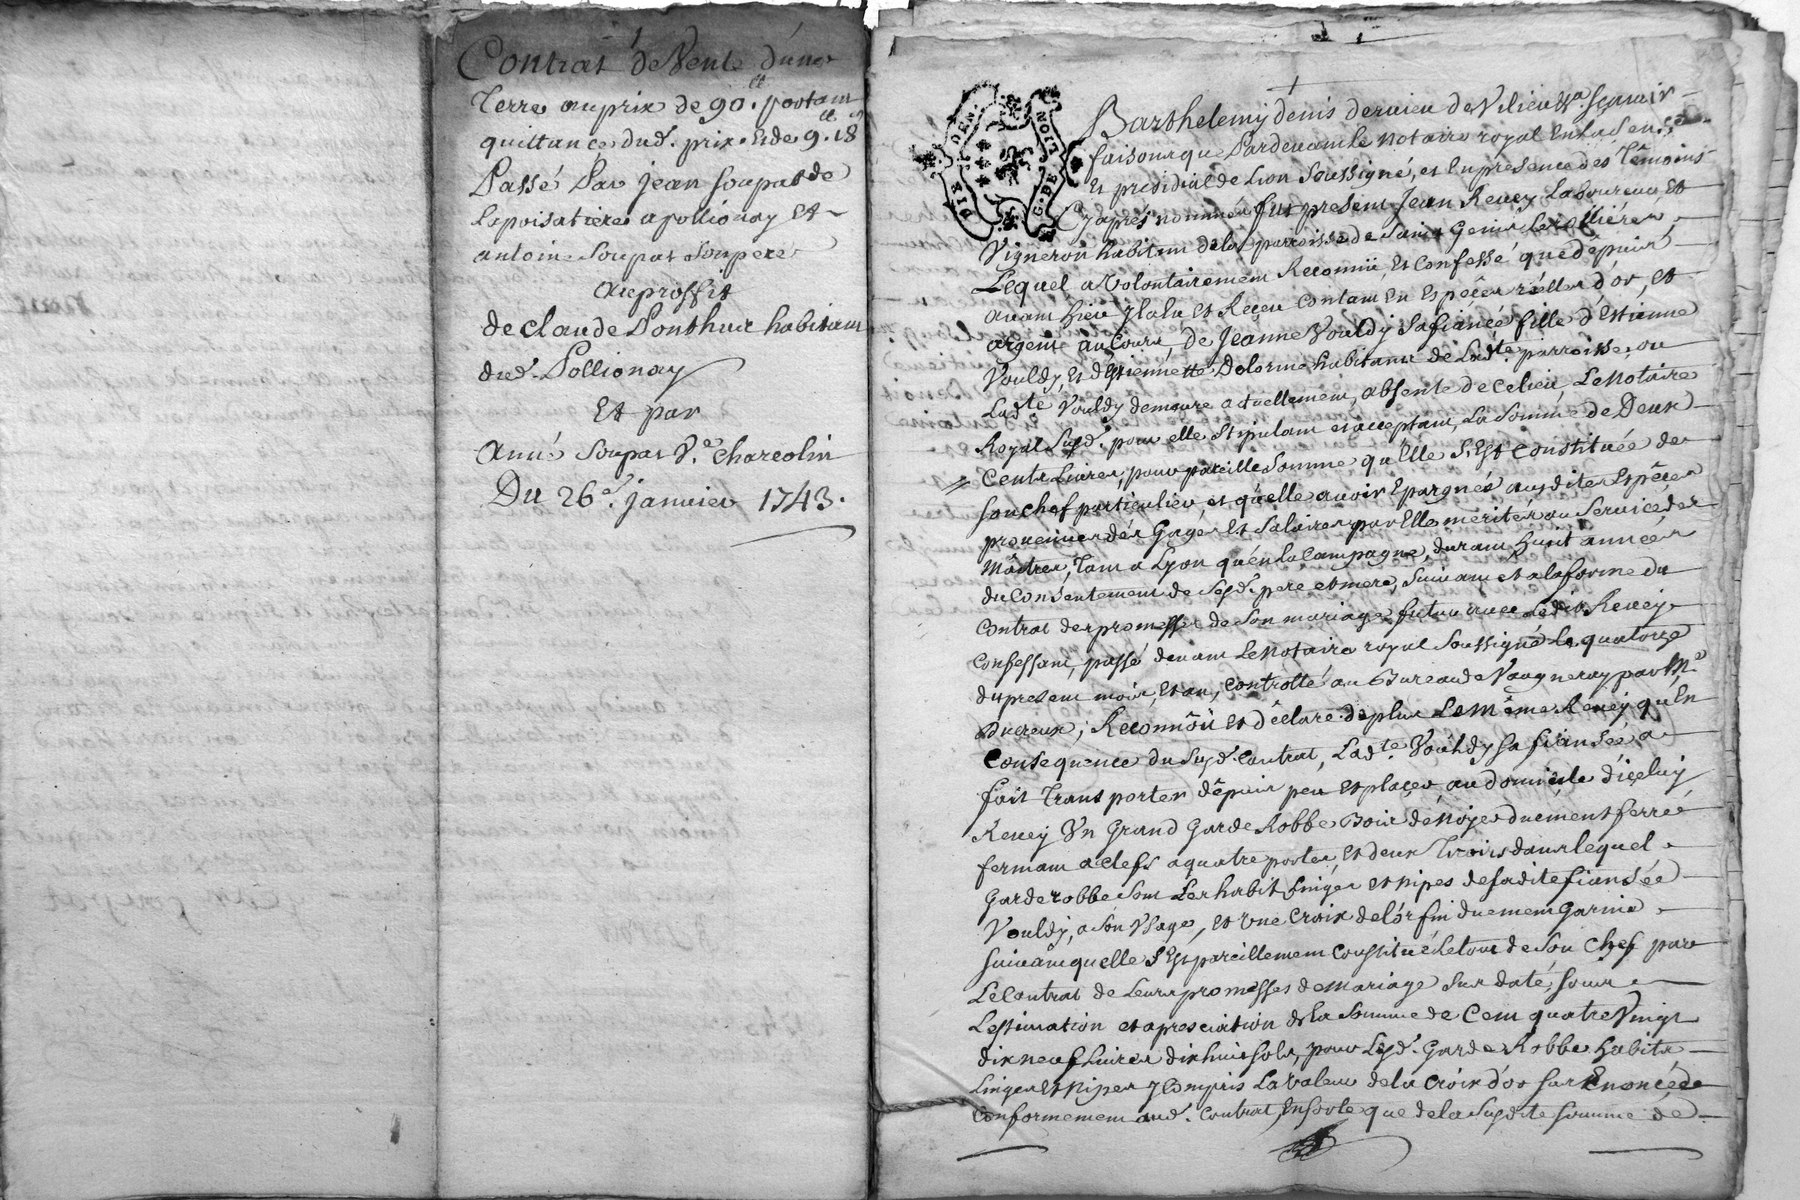 Contrat de Vente d'une
Terre au prix de 90.lt portant
quittance dud. prix Et de 9.lt 18s
Passé Par jean Soupat de
la poisatiere a pollionay Et
antoine Soupat Son pere
au proffit
de claude Ponthus habitant
dud. Pollionay
Et par
Soupat V.e charcolin
Du 26.e janvier 1743.
G. DE LION
DIX DEN
Barthelemy denis dervieu de Vilieu Sçavoir
faisons que Pardevant le Notaire royal En la Sen.ée
Et presidial de Lion Soussigné, et En presence des Têmoins
Cy apres nommés fut present Jean Revey Laboureur Et
Vigneron habitant de la parroisse de Saint Genis Les ollieres
Lequel a Volontairement Reconnü et Confessé que depuis
avant hier Il a eu et Receu Contant En Especes réelles d'or, et
argent au Cours, de Jeanne Vouldy Sa fiancée fille d'Estienne
Vouldy, Et d'Estiennette Delorme habitants de Lad.te parroisse, ou
Lad.te Vouldy demeure actuellement, absente de Ce lieu Le Notaire
Royal Susd. pour elle Stipulant et acceptant, La Somme de Deux
Cents Livres, pour pareille Somme qu'Elle S'Est Constituée de
Son chef particulier, et qu'elle avoir Epargnés ausdites Espêces
provenües des Gages Et Salaires par Elle mérités au Service des
Maîtres, Tant a Lyon qu'en La Campagne, durant huit années
du Consentement de Sesd. pere et mere, Suivant et a la forme du
Contrat des promesses de Son mariage futur avec Ledit Revey
Confessant, passé devant Le Notaire royal Soussigné Le quatorze
du present mois, Et an, Controllé au Bureau de Vaugneray par M.e
Ducreux; Reconnôit et dêclare de plus Le Même Revey qu'En
Consequence du Susd. Contrat, Lad.te Vouldy Sa fiansée a
fait Transporter dêpuis peu et placer au domicile d'içeluy
Revey Vn Grand Garde Robbe Bois de Noyer duement ferré
fermant a clefs a quatre portes, Et deux Tiroirs dans lequel
Garderobbe Sont Les habit Linges et Nipes de Sadite fiansée
Vouldy, a Son Vsage, et une Croix de l'or fin duement Garnie
Suivant quelle S'Est pareillement Constitué Le tout de Son Chef par
Le Contrat de Leurs promesses de Mariage Sus daté, Sous
L'estimation et apreciation de la Somme de Cent quatre Vingt
dix neuf Livres dix huit Sols, pour Lesd. Garde Robbe habits
Linges et Nipes Y Compris La Valeur de la Croix d'or Sus Enoncée
Conformement aud. Contrat, En Sorte que de la Susdite Somme de